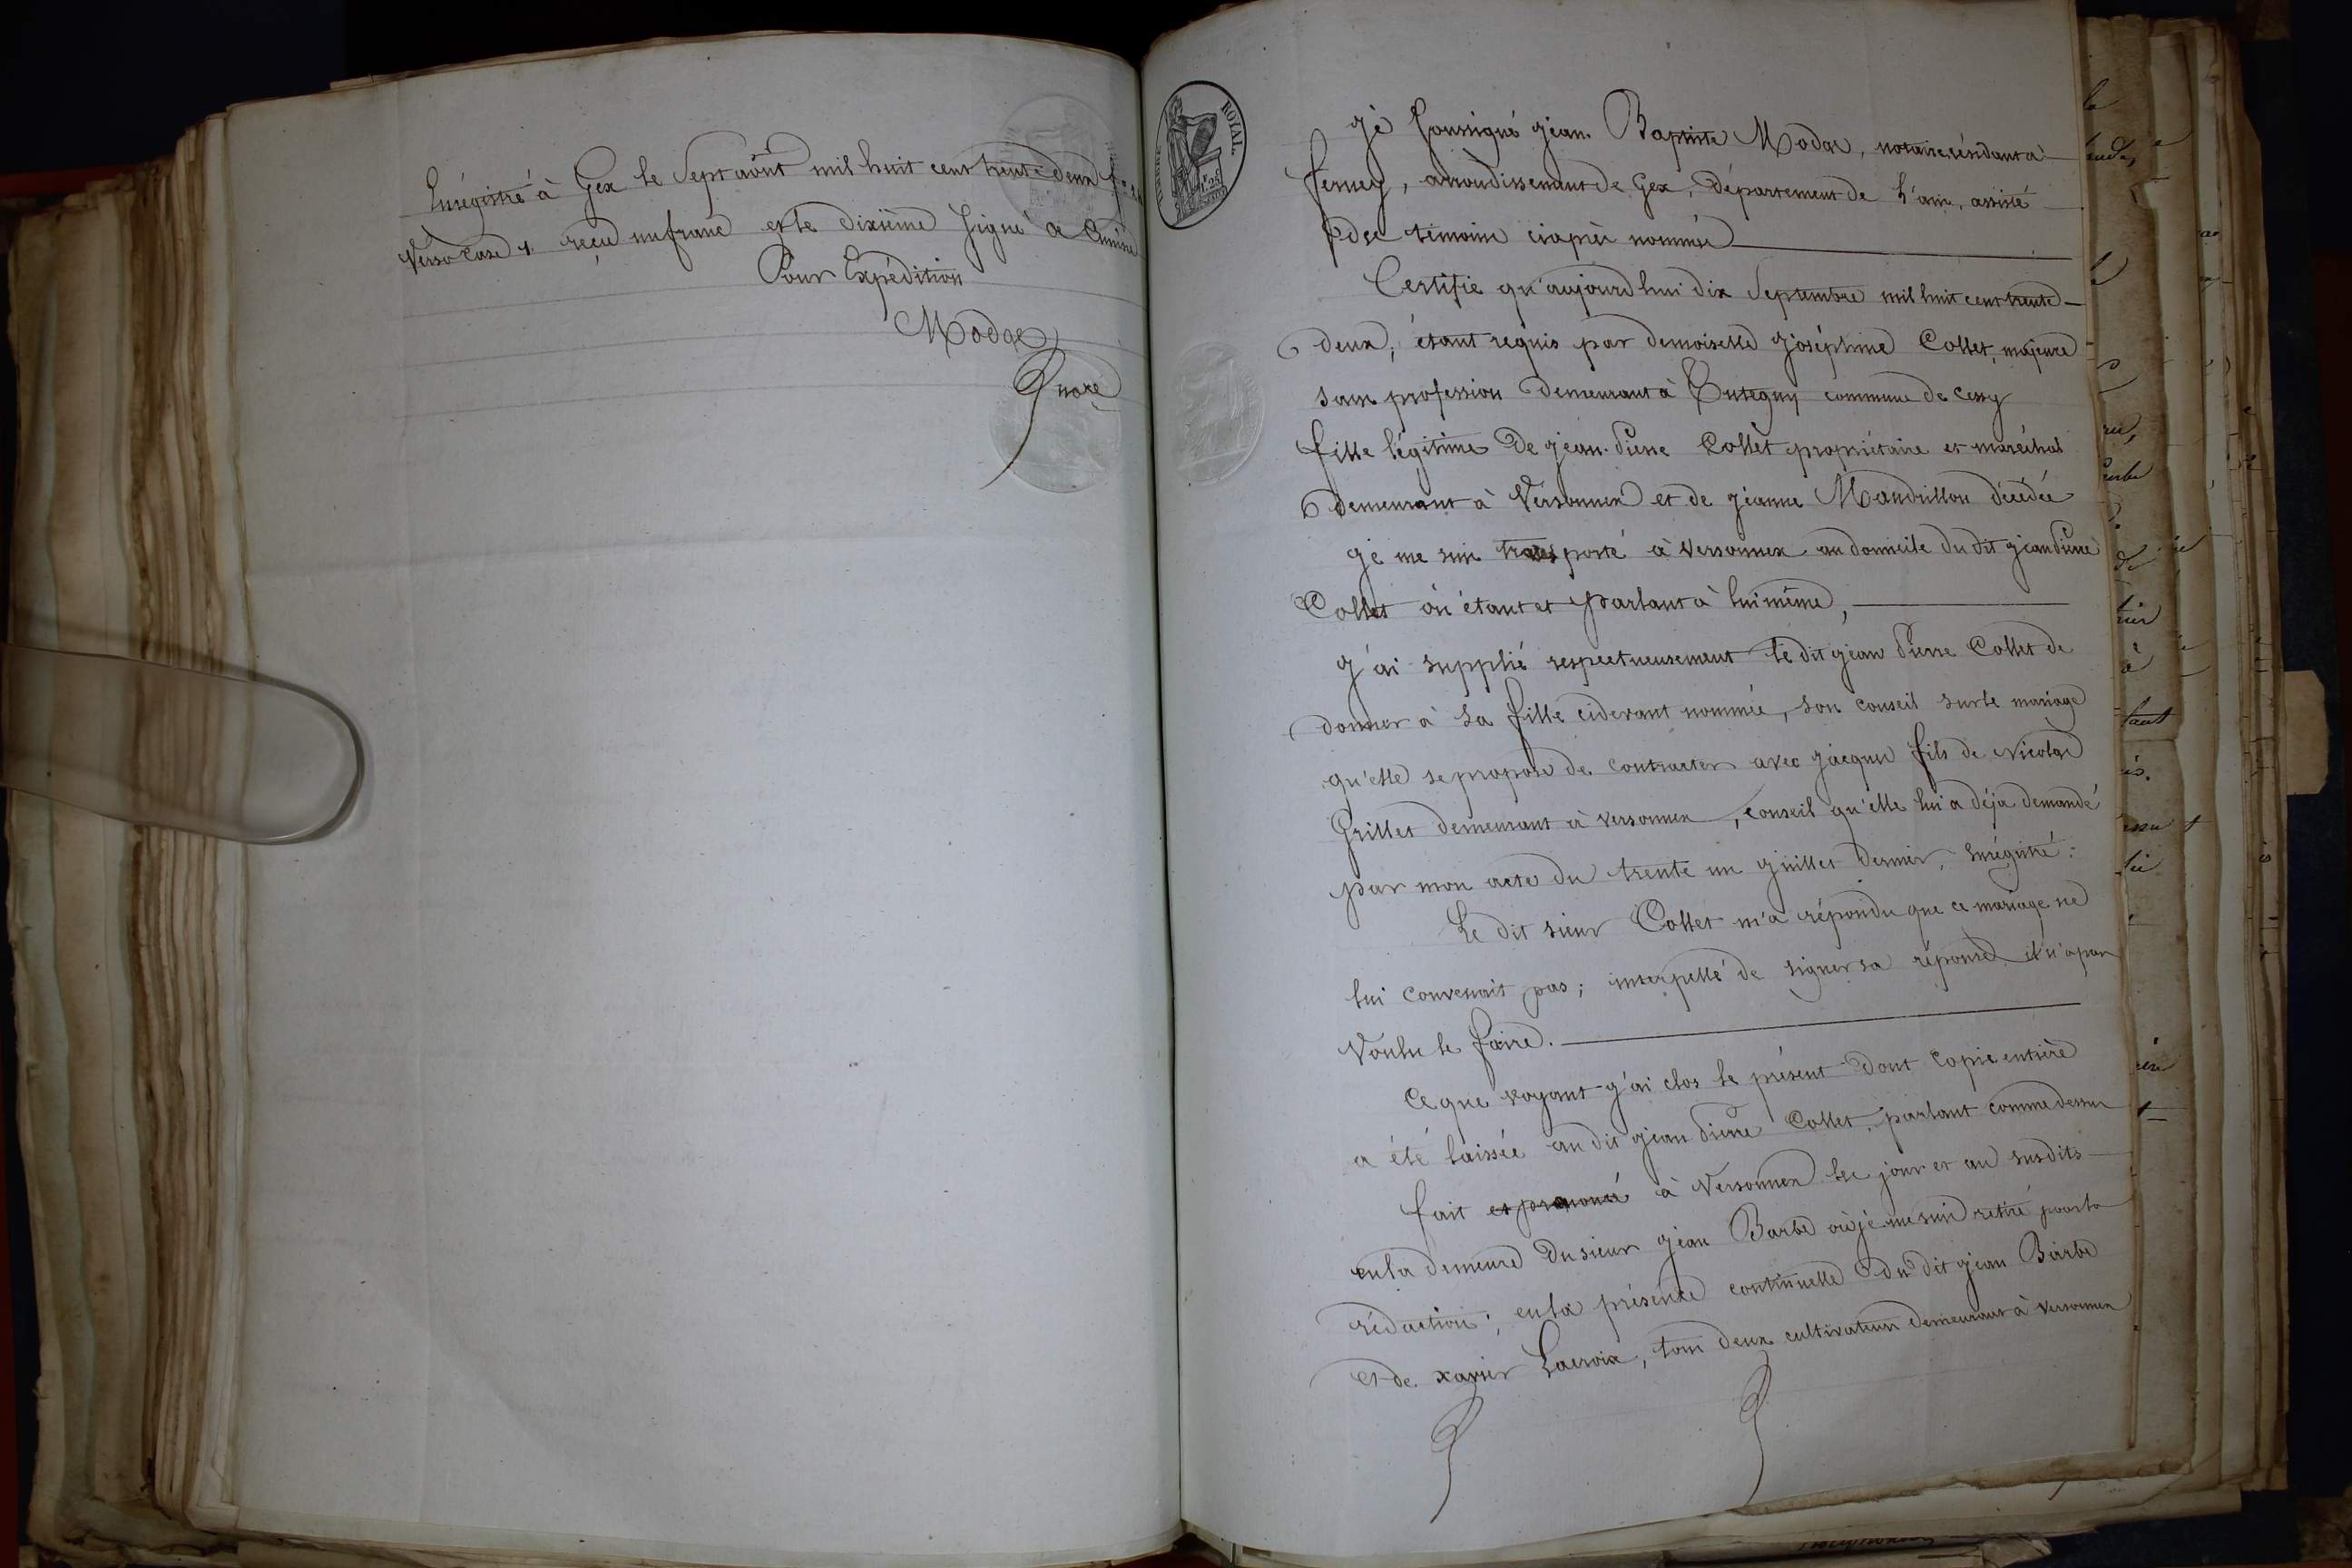 Enrégistré à Gex le Sept août mil huit cent trente deux f°
Verso Case 1 reçu un franc et le dixième Signé
Pour Expédition
Modas
Gnore
ROYAL
1F.25
Je soussigné Jean Baptiste Modas, notaire résidant à
ferney, arrondissement de Gex, Département de L'ain, assisté
des témoins ciaprès nommés
Certifie qu'aujourdhui dix Septembre mil huit cent trente
deux, étant requis par demoiselle Joséphine Collet, majeure
sans profession demeurant à Tutegny commune de Cessy
fille légitime de Jean-Pierre Collet propriétaire et maréchal
demeurant à Versonnex et de Jeanne Mandrillon décédée
Je me suis transporté à Versonnex au domicile du dit Jean Pierre
Collet où étant et parlant à lui même,
J'ai supplié respectueusement le dit Jean Pierre Collet de
donner à sa fille cidevant nommée, son conseil sur le mariage
qu'elle se propose de contracter avec Jacques fils de Nicolas
Grillet demeurant à Versonnex, conseil qu'elle lui a déja demandé
par mon acte du trente un Juillet dernier, enrégistré.
Le dit sieur Collet m'a répondu que ce mariage ne
lui convenait pas; interpellé de signer sa réponse il n'a pas
voulu le faire.
Ce que voyant j'ai clos le présent dont copie entière
a été laissée au dit Jean Pierre Collet, parlant comme dessus
fait et prononcé à Versonnex les jour et an susdits
en la demeure du sieur Jean Barbe où je me suis retiré pour la
rédaction; en la présence continuelle du dit Jean Barbe
et de xavier Lacroix, tous deux cultivateurs demeurant à Versonnex